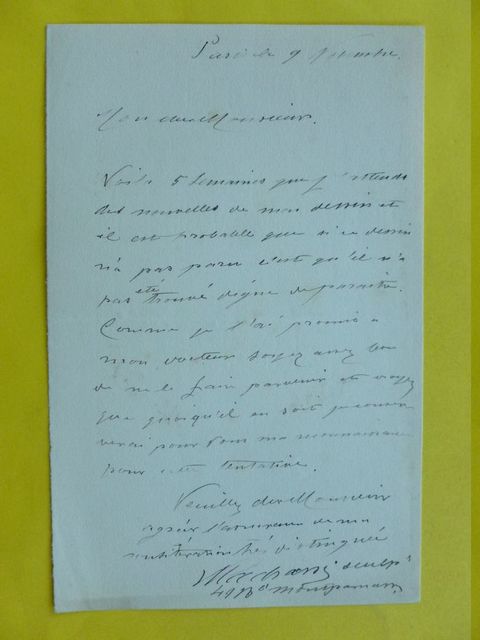 Paris le 9 9bre
Mon cher Monsieur.
Voilà 5 semaines que j'attends
des nouvelles de mon dessin et
il est probable que si ce dessin
n'a pas paru c'est qu'il n'a
pas été trouvé digne de paraitre.
Comme je l'ai promis à
mon docteur soyez assez bon
de me le faire parvenir et croyez
que quoiqu'il en soit je
pour vous ma reconnaissance
pour cette tentative.
Veuillez cher Monsieur
agréer l'assurance de ma
considération très distinguée
sculpr
49 Bd Montparnasse